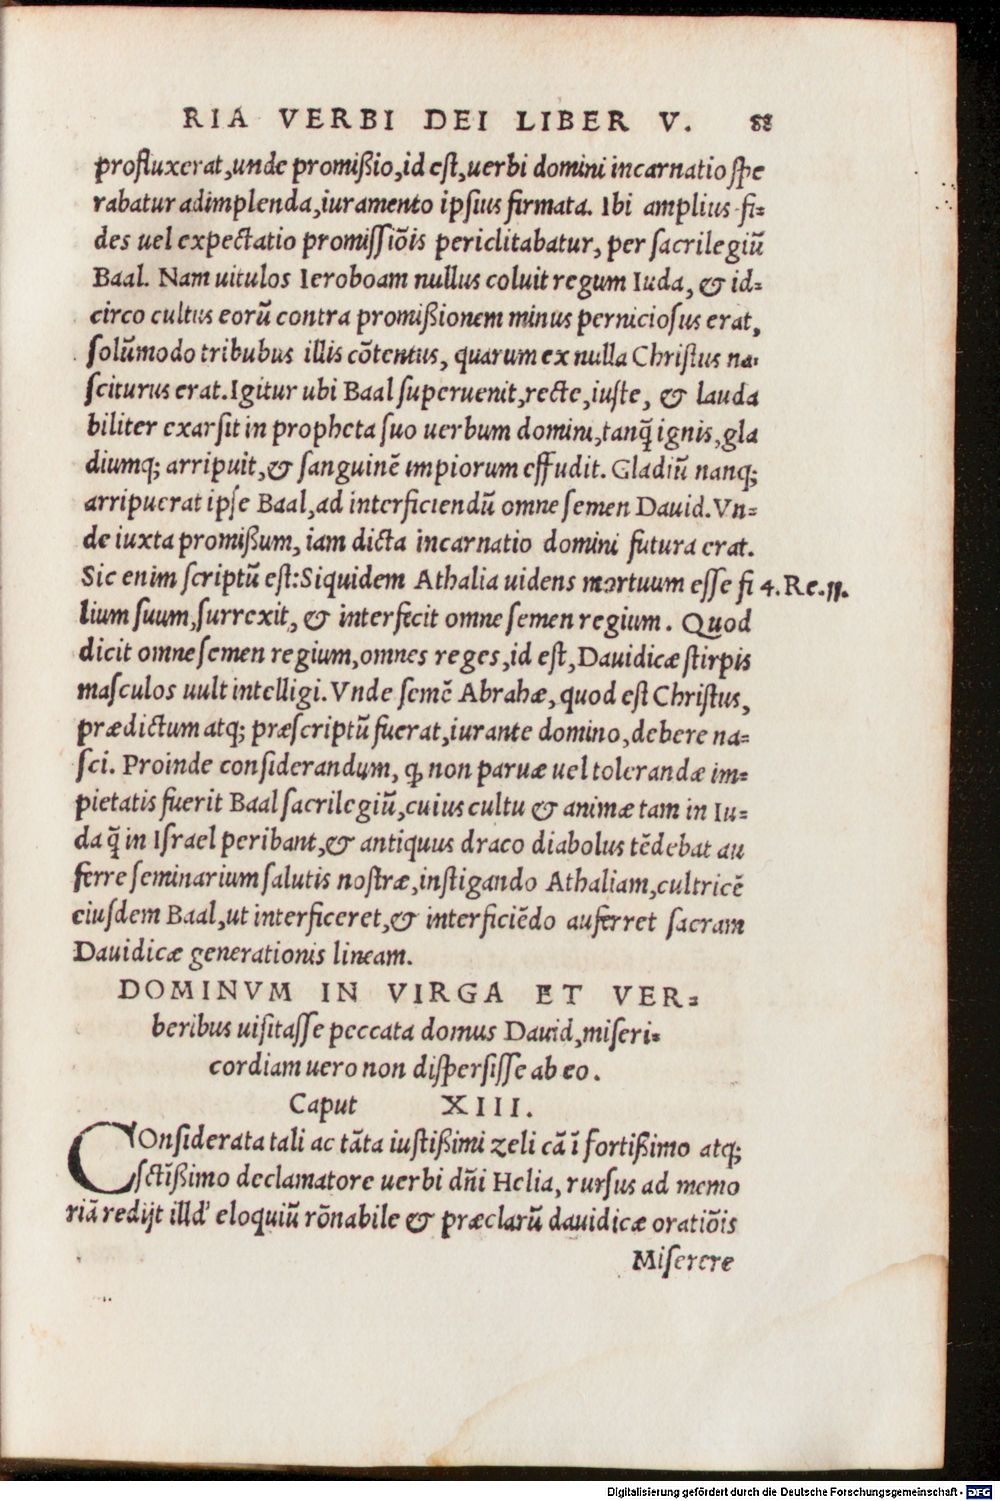 RIA VERBI DEI LIBER V. 88
profluxerat,unde promißio,id eſt,uerbi domini incarnatio ſpe
rabatur adimplenda,iuramento ipſius firmata. Ibi amplius fi=
des uel expectatio promiſſiõis periclitabatur, per ſacrilegiũ
Baal. Nam uitulos Ieroboam nullus coluit regum Iuda, & id=
circo cultus eorũ contra promißionem minus pernicioſus erat,
ſolũmodo tribubus illis cõtentus, quarum ex nulla Chriſtus na=
ſciturus erat.Igitur ubi Baal ſuperuenit,recte,iuſte, & lauda
biliter exarſit in propheta ſuo uerbum domini,tanq̃ ignis,gla
diumq; arripuit,& ſanguinẽ impiorum effudit. Gladiũ nanq;
arripuerat ipſe Baal,ad interficiendũ omne ſemen Dauid.Vn=
de iuxta promißum, iam dicta incarnatio domini futura erat.
Sic enim ſcriptũ eſt:Siquidem Athalia uidens mortuum eſſe fi 4.Re.11.
lium ſuum,ſurrexit, & interfecit omne ſemen regium. Quod
dicit omne ſemen regium,omnes reges,id eſt,Dauidicæ ſtirpis
maſculos uult intelligi.Vnde ſemẽ Abrahæ,quod eſt Chriſtus,
prædictum atq; præſcriptũ fuerat,iurante domino,debere na=
ſci. Proinde conſiderandum, q, non paruæ uel tolerandæ im=
pietatis fuerit Baal ſacrilegiũ,cuius cultu & animæ tam in Iu=
da q̃ in Iſrael peribant,& antiquus draco diabolus tẽdebat au
ferre ſeminarium ſalutis noſtræ,inſtigando Athaliam,cultricẽ
eiuſdem Baal,ut interficeret,& interficiẽdo auferret ſacram
Dauidicæ generationis lineam.
DOMINVM IN VIRGA ET VER=
beribus uiſitaſſe peccata domus Dauid,miſeri=
cordiam uero non diſperſiſſe ab eo.
Caput XIII.
COnſiderata tali ac tãta iuſtißimi zeli cã ĩ fortißimo atq;
ſctißimo declamatore uerbi dñi Helia, rurſus ad memo
riã redijt illd' eloquiũ rõnabile & præclarũ dauidicæ oratiõis
Miſerere
Digitalisierung gefördert durch die Deutsche Forschungsgemeinschaft - DFG